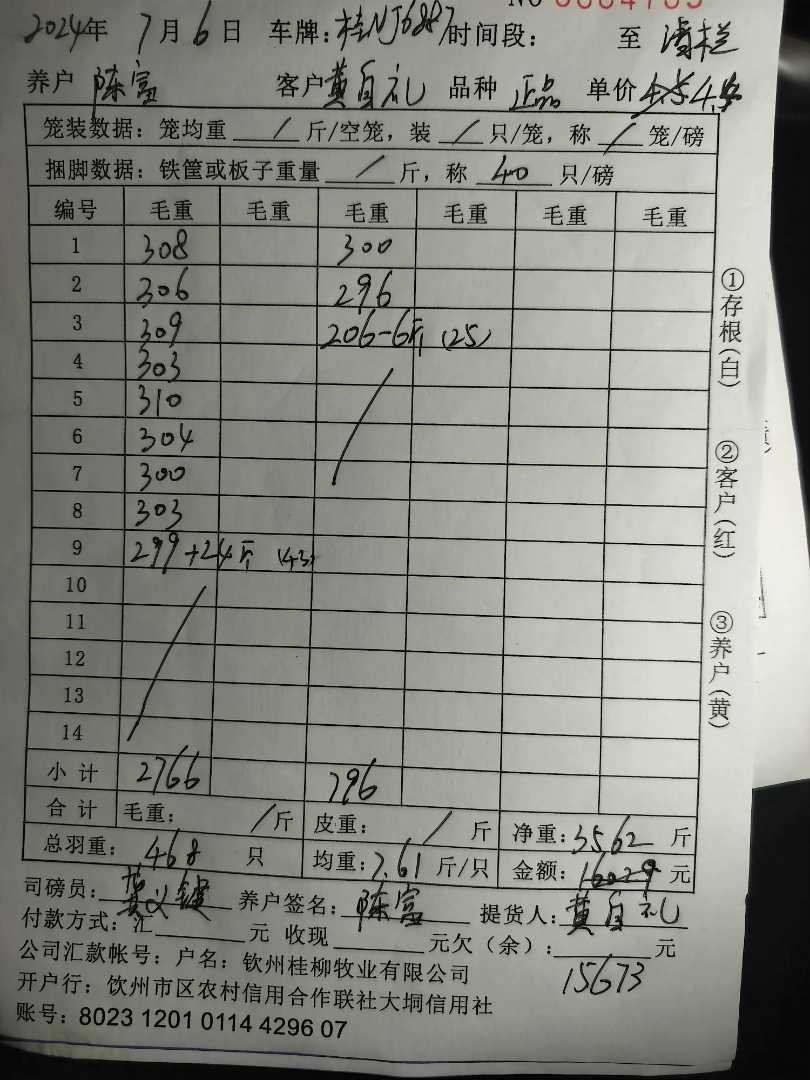 2024年 7月 6日 车牌:桂NJ6887 时间段: 至 清栏
养户 陈富 客户 黄自礼 品种 正品 单价 4.5
笼装数据: 笼均重 / 斤/空笼, 装 / 只/笼, 称 / 笼/磅
捆脚数据: 铁筐或板子重量 / 斤, 称 40 只/磅
编号 毛重 毛重 毛重 毛重 毛重 毛重
1 308 300
2 306 296
3 309 206-6斤 (25)
4 303
5 310
6 304
7 300
8 303
9 299+24斤 (43)
10
11
12
13
14
小计 2766 796
合计 毛重: / 斤 皮重: / 斤 净重: 3562 斤
总羽重: 468 只 均重: 7.61 斤/只 金额: 16029 元
司磅员: 黄义键 养户签名: 陈富 提货人: 黄自礼
付款方式: 汇 元 收现 元欠(余): 元
15673
公司汇款帐号: 户名: 钦州桂柳牧业有限公司
开户行: 饮州市区农村信用合作联社大垌信用社
账号: 8023 1201 0114 4296 07
①存根(白)
②客户(红)
③养户(黄)